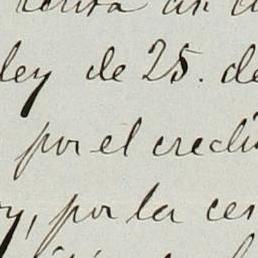 ley de 25. de
por el credi
y, por la ces